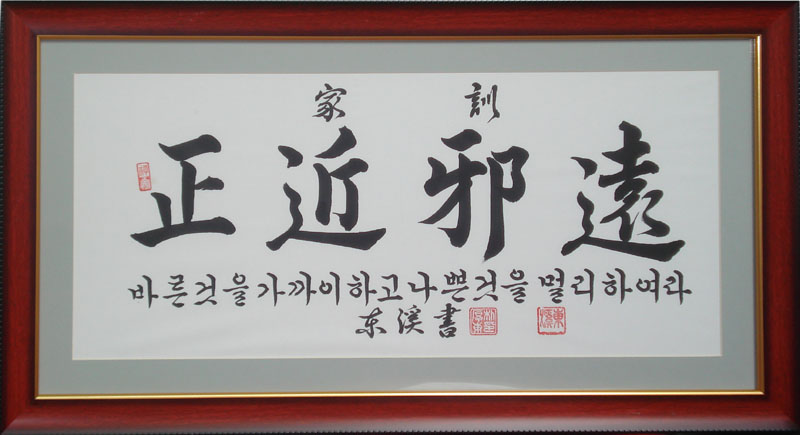 家訓
正近邪遠
바른것을가까이하고나쁜것을멀리하여라
东溪書